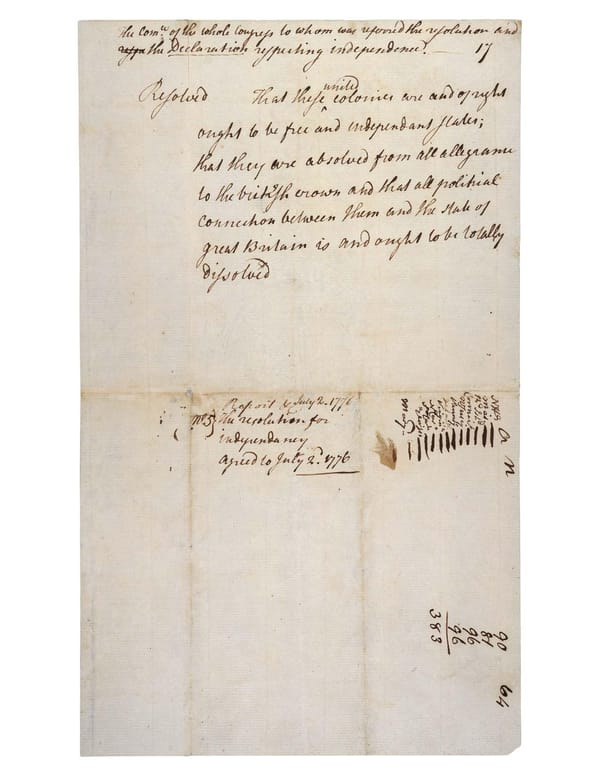 The Com.ee of the whole Congress to whom was referred the resolution and
the Declaration respecting independence. — 17
Resolved That these united colonies are and of right
ought to be free and independant states;
that they are absolved from all allegiance
to the british crown and that all political
connection between them and the state of
great Britain is and ought to be totally
dissolved
Report July 2. 1776
No. 5 The resolution for
independancy
agreed to July 2.d 1776
o n
90
81
96
96
383
64